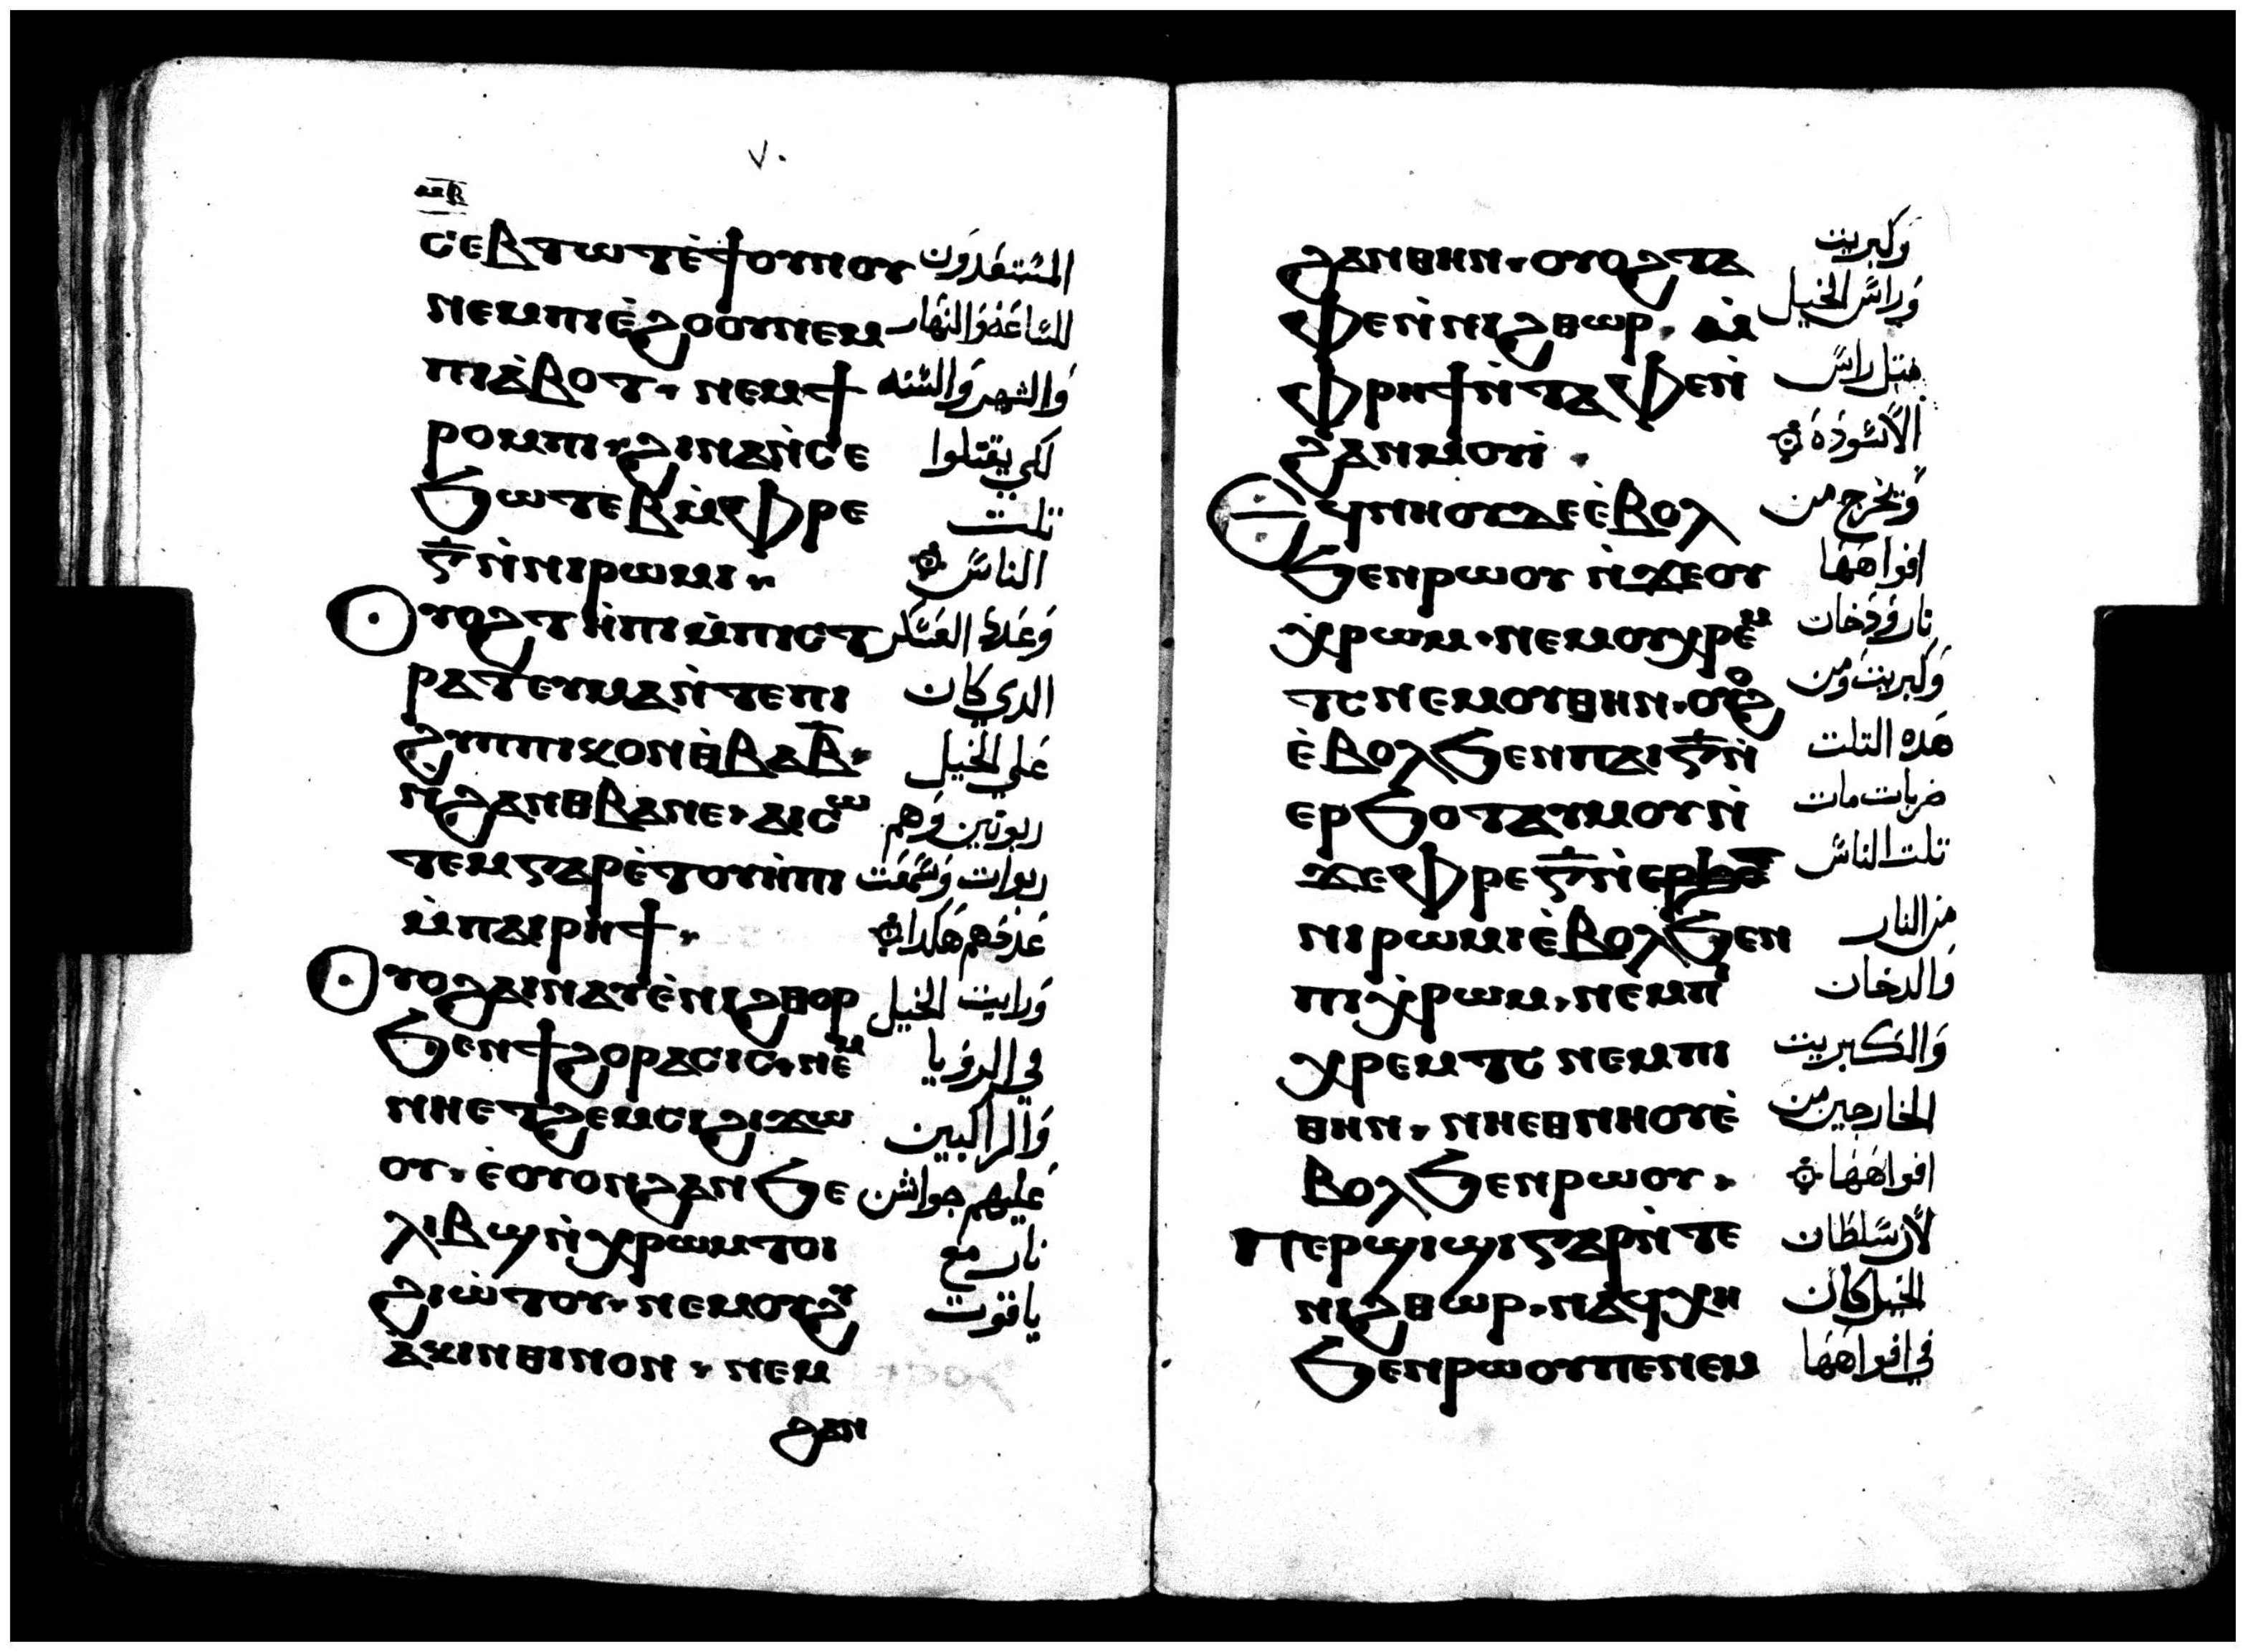 ٧٠
ⲙⲃ
ⲥⲉⲃⲧⲱⲧⲉ̀ϯⲟⲩⲛⲟⲩ المستعدون
ⲛⲉⲙⲡⲓⲉ̀ϩⲟⲟⲩⲛⲉⲙ للساعه والنهار
ⲡⲓⲁ̀ⲃⲟⲧ. ⲛⲉⲙϯ والشهر والسنه
ⲣⲟⲙⲡⲓ. ϩⲓⲛⲁⲛ̀ⲥⲉ لكي يقتلوا
ϧⲱⲧⲉⲃⲙ̀ⲫⲣⲉ تلت
ⲅ̅ⲛ̀ⲛⲓⲣⲱⲙⲓ. الناس
ⲟⲩⲟϩⲧⲏ̀ⲡⲓⲙ̀ⲡⲓⲥⲧ وعدد العسكر
ⲣⲁⲧⲉⲩⲙⲁⲛ̀ⲧⲉⲡⲓ الدي كان
ϩⲩⲡⲡⲓⲕⲟⲛⲑ̀ⲃⲁⲃ̅. علي الخيل
ⲛ̀ϩⲁⲛⲑⲃⲁⲛⲉ. ⲁⲓⲥⲱ ربوتين وهم
ⲧⲉⲙⲅⲁⲣⲉ̀ⲧⲟⲩⲏ̀ⲡⲓ ربوات وسمعت
ⲙ̀ⲡⲁⲓⲣⲏϯ. عددهم هكدا
ⲟⲩⲟϩⲁⲓⲛⲁⲩⲉ̀ⲛⲓϩⲑⲟⲣ ورايت الخيل
ϧⲉⲛϯϩⲟⲣⲁⲥⲓⲥ. ⲛⲉⲙ في الرؤيا
ⲛⲏⲉⲧϩⲉⲙⲥⲓϩⲓϫⲱ والراكبين
ⲟⲩ. ⲉ̀ⲟⲩⲟⲛϩⲁⲛϧⲉ عليهم جواشن
ⲗⲓⲃϣⲛ̀ⲭⲣⲱⲙⲧⲟⲓ نار مع
ϩⲓⲱ̀ⲧⲟⲩ. ⲛⲉⲙⲟⲩϩⲩ ياقوت
ⲁⲕⲓⲛⲑⲓⲛⲟⲛ. ⲛⲉⲙ
ϩⲁⲛ
ϩⲁⲛⲑⲏⲛ. ⲟⲩⲟϩⲧⲁ وكبريت
ⲫⲉⲛ̀ⲛⲓϩⲑⲱⲣ. ⲙ̀ وراس الخيل
ⲫⲣⲏϯⲛ̀ⲧⲁⲫⲉⲛ̀ متل راس
ϩⲁⲛⲙⲟⲩⲓ̀. الاسوده
ⲉϥⲛⲏⲟⲩⲇⲉⲉ̀ⲃⲟⲗ ويخرج من
ϧⲉⲛⲣⲱⲟⲩ ⲛ̀ϫⲉⲟⲩ افواهها
ⲭ̀ⲣⲱⲙ. ⲛⲉⲙⲟⲩⲭⲣⲉⲙ نار ودخان
ⲧⲥ ⲛⲉⲙⲟⲩⲑⲏⲛ. ⲟⲩⲟϩ وكبريت ومن
ⲉ̀ⲃⲟⲗϧⲉⲛⲡⲁⲓⲅ̅ⲛ̀ هده التلت
ⲉⲣϧⲟⲧⲁⲩⲙⲟⲩⲛ̀ ضربات مات
ϫⲉⲫⲣⲉⲅ̅ⲛ̀ تلت الناس
ⲛⲓⲣⲱⲙⲓⲉ̀ⲃⲟⲗϧⲉⲛ من النار
ⲡⲓⲭ̀ⲣⲱⲙ. ⲛⲉⲙⲡⲓ والدخان
ⲭⲣⲉⲙⲧⲥ ⲛⲉⲙⲡⲓ والكبريت
ⲑⲏⲛ. ⲛⲏⲉⲑⲛⲏⲟⲩⲉ̀ الخارجين من
ⲃⲟⲗϧⲉⲛⲣⲱⲟⲩ. افواهها
ⲡⲉⲣϣⲓϣⲓⲅⲁⲣⲛ̀ⲧⲉ لان سلطان
ⲛⲓϩⲑⲱⲣ. ⲛⲁ̀ϥⲭⲏ الخيل كان
ϧⲉⲛⲣⲱⲟⲩⲡⲉⲛⲉⲙ في افواهها